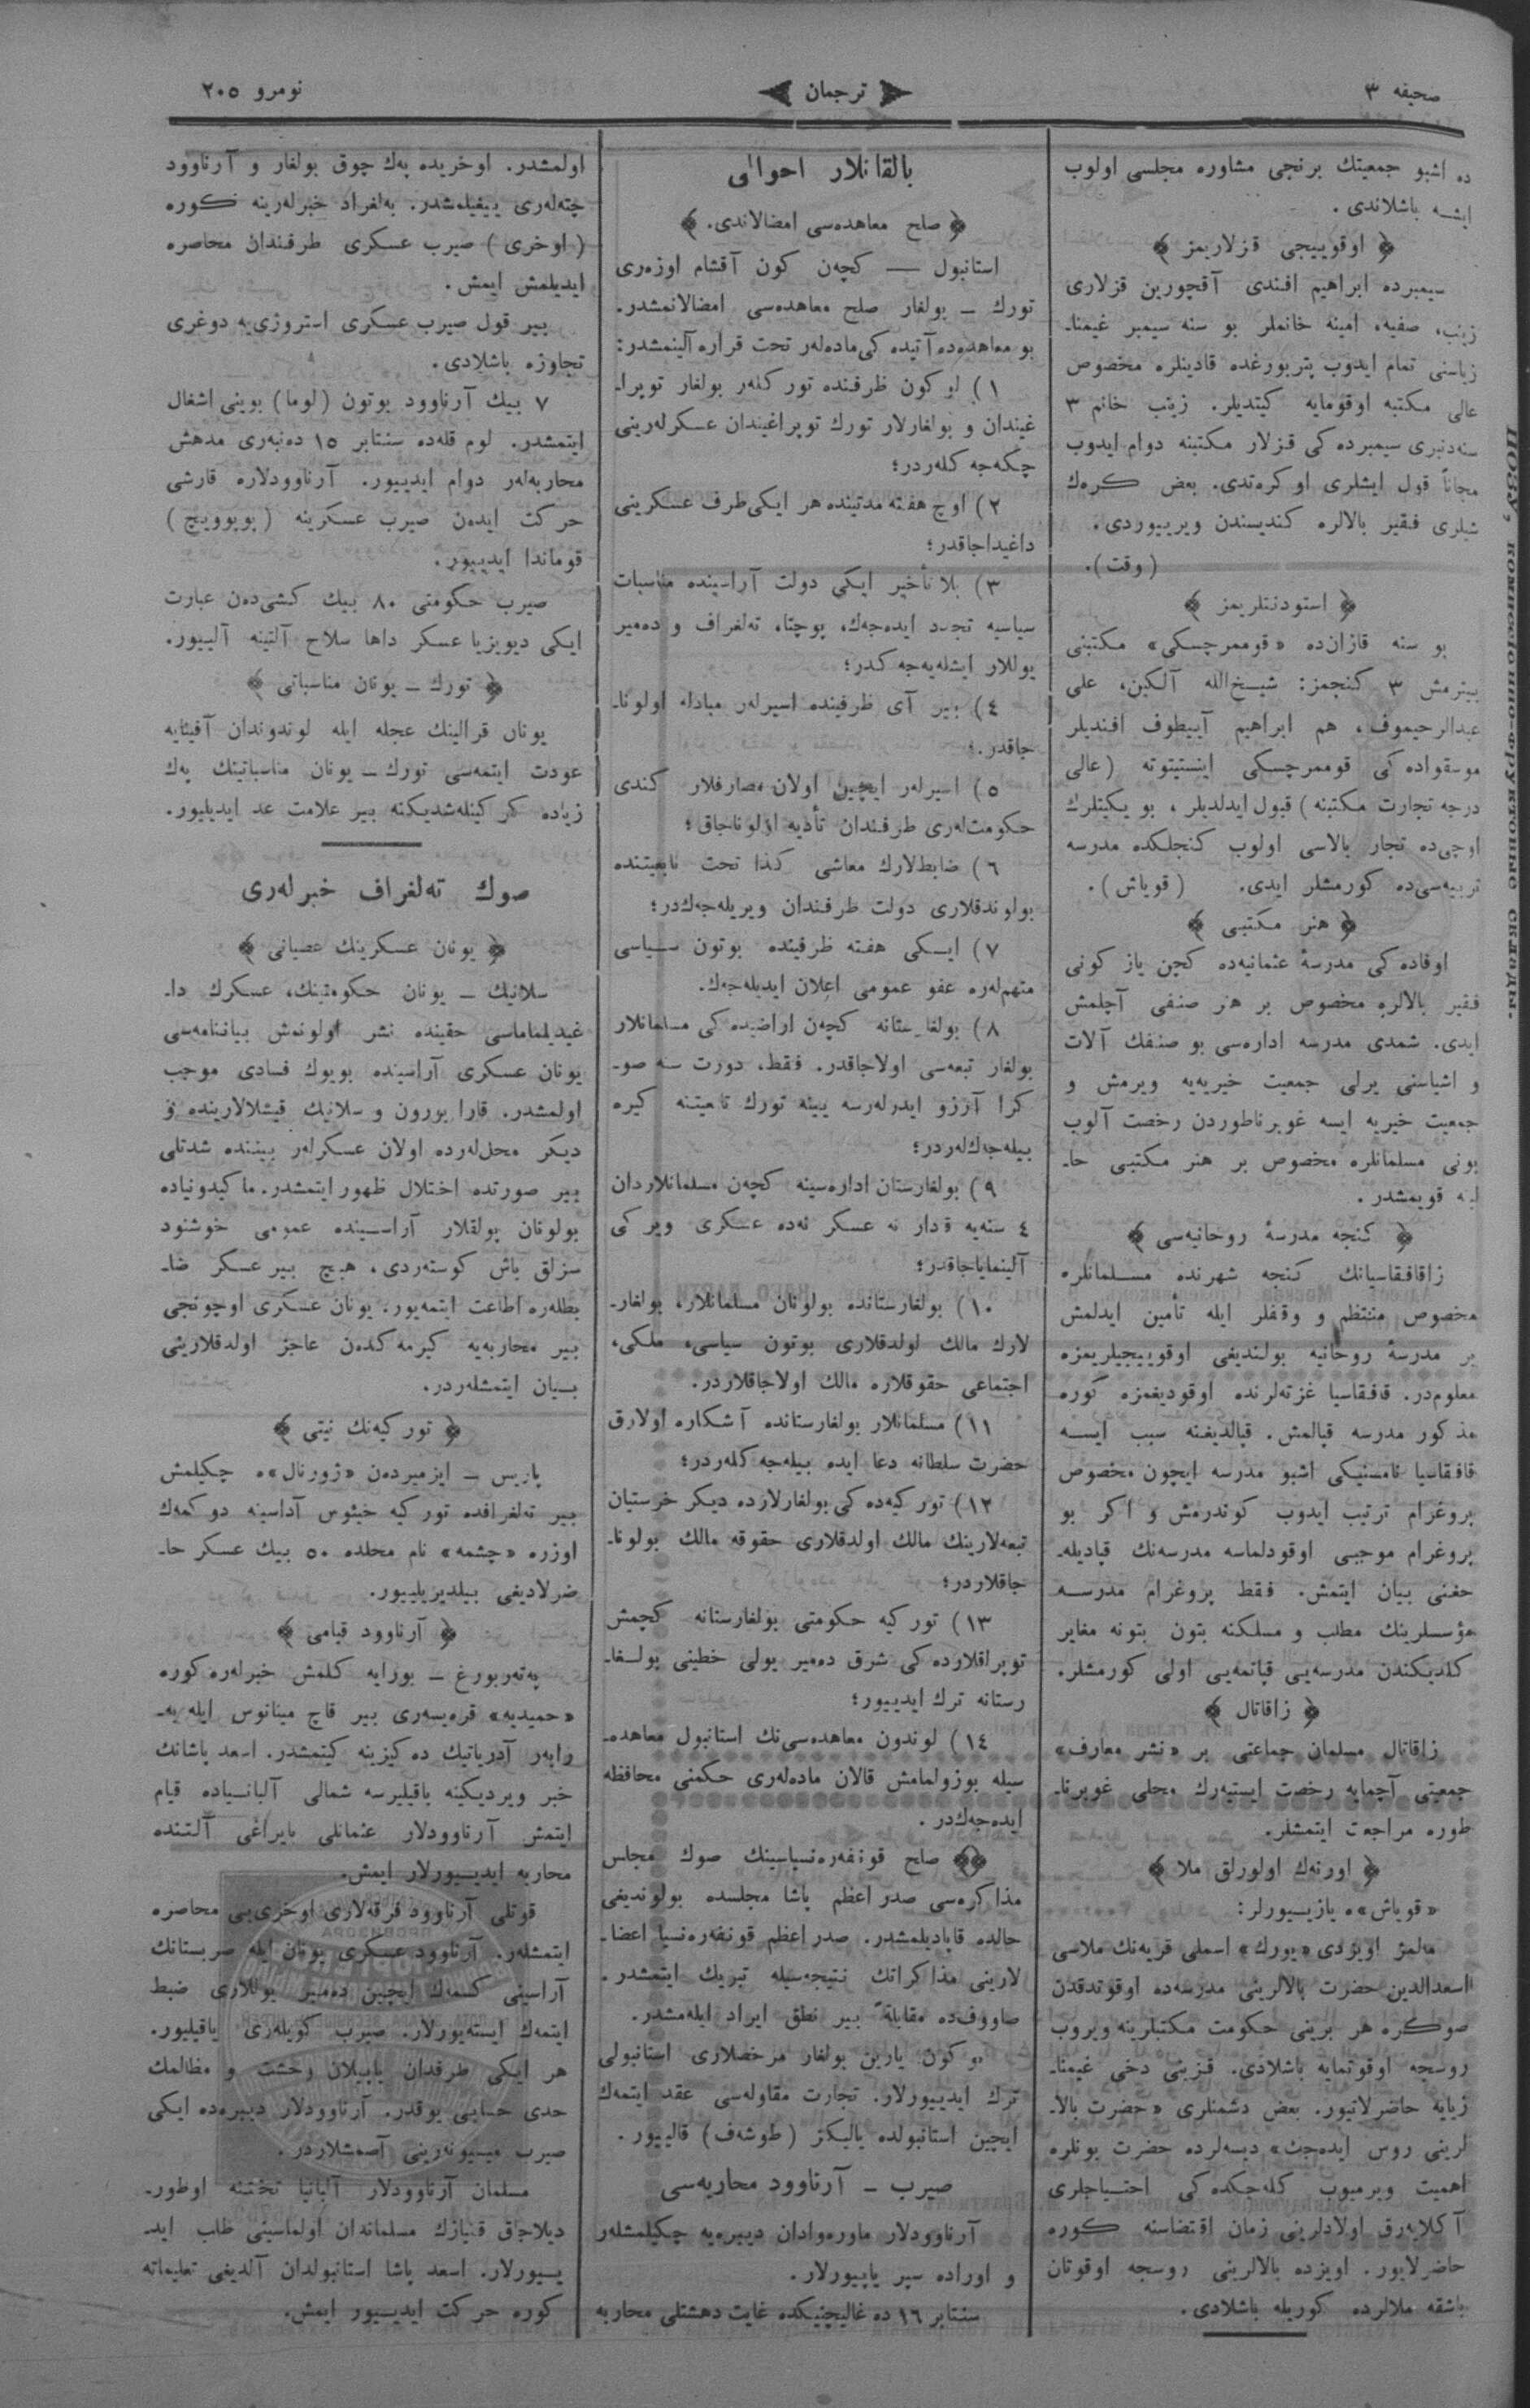 صحيفه ٣
ترجمان
نومرو ٢٠٥
ده اشبو جمعيتك برنجى مشاوره مجلسى اولوب
ايشه باشلاندى.
﴿ اوقوييجى قزلاريمز ﴾
سيمبرده ابراهيم افندى آقچورين قزلارى
زينب، صفيه، امينه خانملر بو سنه سيمبر غيمنا-
زياسنى تمام ايدوب پتربورغده قادينلره مخصوص
عالى مكتبه اوقومايه كيتديلر. زينب خانم ٣
سنه‌دنبرى سيمبرده كى قزلار مكتبنه دوام ايدوب
مجاناً قول ايشلرى اوكره‌تدى. بعض كره‌ك
شيلرى فقير بالالره كنديسندن ويرييوردى.
(وقت).
﴿ استودنتلريمز ﴾
بو سنه قازان‌ده «قوممرچسكى» مكتبنى
بيترمش ٣ كنجمز: شيخ‌الله آلكين، على
عبدالرحيموف، هم ابراهيم آييطوف افنديلر
موسقواده كى قوممرچسكى اينستيتوته (عالى
درجه تجارت مكتبنه) قبول ايدلديلر، بو يكيتلرك
اوچى‌ده تجار بالاسى اولوب كنجلكده مدرسه
تربيه‌سى‌ده كورمشلر ايدى. (قوياش).
﴿ هنر مكتبى ﴾
اوفاده كى مدرسهٔ عثمانيه‌ده كچن ياز كونى
فقير بالالره مخصوص بر هنر صنفى آچلمش
ايدى. شمدى مدرسه اداره‌سى بو صنفك آلات
و اشياسنى يرلى جمعيت خيريه‌يه ويرمش و
جمعيت خيريه ايسه غوبرناطوردن رخصت آلوب
بونى مسلمانلره مخصوص بر هنر مكتبى حا-
لنه قويمشدر.
﴿ كنجه مدرسهٔ روحانيه‌سى ﴾
زاقافقاسيانك كنجه شهرنده مسلمانلره
مخصوص منتظم و وقفلر ايله تأمين ايدلمش
بر مدرسهٔ روحانيه بولنديغى اوقوييجيلريمزه
معلوم‌در. قافقاسيا غزته‌لرنده اوقوديغمزه كوره
مذكور مدرسه قپالمش. قپالديغنه سبب ايسه
قافقاسيا نامسنيكى اشبو مدرسه ايچون مخصوص
پروغرام ترتيب ايدوب كوندرمش و اكر بو
پروغرام موجبى اوقودلماسه مدرسه‌نك قپاديله-
جغنى بيان ايتمش. فقط پروغرام مدرسه
مؤسسلرينك مطلب و مسلكنه بتون بتونه مغاير
كلديكندن مدرسه‌يى قپاتمه‌يى اولى كورمشلر.
﴿ زاقاتال ﴾
زاقاتال مسلمان جماعتى بر «نشر معارف»
جمعيتى آچمايه رخصت ايستيه‌رك محلى غوبرنا-
طوره مراجعت ايتمشلر.
﴿ اورنه‌ك اولورلق ملا ﴾
«قوياش»ه يازييورلر:
اويزدى «يورك» اسملى قريه‌نك ملاسى
اسعدالدين حضرت بالالرينى مدرسه‌ده اوقوتدقدن
صوكره هر برينى حكومت مكتبلرينه ويروب
روسجه اوقوتمايه باشلادى. قزينى دخى غيمنا-
زيايه حاضرلاتيور. بعض دشمنلرى «حضرت بالا-
لرينى روس ايده‌جك» ديسه‌لرده حضرت بونلره
اهميت ويرميوب كله‌جكده كى احتياجلرى
آكلايه‌رق اولادلرينى زمان اقتضاسنه كوره
حاضرلايور. اويزده بالالرينى روسجه اوقوتان
باشقه ملالرده كوريله باشلادى.
بالقانلار احوالى
﴿ صلح معاهده‌سى امضالاندى. ﴾
استانبول — كچه‌ن كون آقشام اوزه‌رى
تورك — بولغار صلح معاهده‌سى امضالانمشدر.
بو معاهده‌ده آتيده كى ماده‌لر تحت قراره آلينمشدر:
١) كون ظرفنده توركلەر بولغار توپرا-
غيندان و بولغارلار تورك توپراغيندان عسكرلەرينى
چكه‌جه كله‌ردر؛
٢) اوچ هفته مدتينده هر ايكى طرف عسكرينى
داغيداجاقدر؛
٣) بلا تأخير ايكى دولت آراسينده مناسبات
سياسيه تجدد ايده‌جه‌ك، پوچتا، ته‌لغراف و ده‌مير
يوللار ايشله‌يه‌جه كدر؛
٤) بير آى ظرفينده اسيرلەر مبادله اولونا-
جاقدر.؛
٥) اسيرلەر ايچين اولان مصارفلار كندى
حكومت‌لەرى طرفندان تأديه اولوناجاق؛
٦) ضابط‌لارك معاشى كذا تحت تابعيتنده
بولوندقلارى دولت طرفندان ويريله‌جه‌ك‌در؛
٧) ايكى هفته ظرفينده بوتون سياسى
متهم‌لەره عفو عمومى اعلان ايديله‌جه‌ك.
٨) كچه‌ن اراضيده كى مسلمانلار
بولغار تبعه‌سى اولاجاقدر. فقط، دورت سنه صو-
كرا آرزو ايدرلەرسه يينه تورك تابعيتنه كيره
بيله‌جه‌ك‌له‌ردر؛
٩) بولغارستان اداره‌سينه كچه‌ن مسلمانلاردان
٤ سنه‌يه قدار نه عسكر نه‌ده عسكرى ويركى
آلينماياجاقدر؛
١٠) بولغارستانده بولونان مسلمانلار، بولغار-
لارك مالك اولدقلارى بوتون سياسى، ملكى،
اجتماعى حقوقلاره مالك اولاجاقلاردر.
١١) مسلمانلار بولغارستانده آشكاره اولارق
حضرت سلطانه دعا ايده بيله‌جه كله‌ردر؛
١٢) توركيه‌ده كى بولغارلارده ديكر خرستيان
تبعه‌لارينك مالك اولدقلارى حقوقه مالك بولونا-
جاقلاردر؛
١٣) توركيه حكومتى بولغارستانه كچمش
توپراقلارده كى شرق ده‌مير يولى خطينى بولغا-
رستانه ترك ايدييور؛
١٤) لوندون معاهده‌سى‌نك استانبول معاهده-
سيله بوزولمامش قالان ماده‌لەرى حكمنى محافظه
ايده‌جه‌ك‌در.
﴿﴾ صلح قونفه‌ره‌نسياسينك صوك مجلس
مذاكره‌سى صدر اعظم پاشا مجلسده بولونديغى
حالده قاپاديلمشدر. صدر اعظم قونفه‌ره‌نسيا اعضا-
لارينى مذاكراتك نتيجه‌سيله تبريك ايتمشدر.
صاووف‌ده مقابلةً بير نطق ايراد ايله‌مشدر.
بو كون يارين بولغار مرخصلارى استانبولى
ترك ايدييورلار. تجارت مقاوله‌سى عقد ايتمه‌ك
ايچين استانبولده يالكز (طوشه‌ف) قالييور.
صيرب — آرناوود محاربه‌سى
آرناوودلار ماوره‌وادان ديبره‌يه چكيلمشلەر
و اوراده سپر ياپيورلار.
سنتابر ١٦ ده غاليچنيكده غايت دهشتلى محاربه
اولمشدر. اوخريده په‌ك چوق بولغار و آرناوود
چته‌لەرى ييغيلمشدر. به‌لغراد خبرلەرينه كوره
(اوخرى) صيرب عسكرى طرفندان محاصره
ايديلمش ايمش.
بير قول صيرب عسكرى استروزى‌يه دوغرى
تجاوزه باشلادى.
٧ بيك آرناوود بوتون (لوما) بوينى اشغال
ايتمشدر. لوم قلەده سنتابر ١٥ ده‌نبه‌رى مدهش
محاربه‌لەر دوام ايدييور. آرناوودلاره قارشى
حركت ايده‌ن صيرب عسكرينه (بوپوويچ)
قوماندا ايدييور.
صيرب حكومتى ٨٠ بيك كشى‌ده‌ن عبارت
ايكى ديويزيا عسكر داها سلاح آلتينه آلييور.
﴿ تورك — يونان مناسباتى ﴾
يونان قرالينك عجله ايله لوندوندان آفينايه
عودت ايتمه‌سى تورك — يونان مناسباتينك په‌ك
زياده كركينله‌شديكنه بير علامت عد ايديليور.
صوك ته‌لغراف خبرلەرى
﴿ يونان عسكرينك عصيانى ﴾
سلانيك — يونان حكومتينك، عسكرك دا-
غيديلماماسى حقينده نشر اولونمش بياننامه‌سى
يونان عسكرى آراسينده بويوك فسادى موجب
اولمشدر. قارا بورون و سلانيك قيشلالارينده و
ديكر محل‌لەرده اولان عسكرلەر بيننده شدتلى
بير صورتده اختلال ظهور ايتمشدر. ماكيدونياده
بولونان پولقلار آراسينده عمومى خوشنود
سزلق باش كوسته‌ردى، هيچ بير عسكر ضا-
بطلەره اطاعت ايتمه‌يور. يونان عسكرى اوچونجى
بير محاربه‌يه كيرمه كده‌ن عاجز اولدقلارينى
بيان ايتمشله‌ردر.
﴿ توركيه‌نك نيتى ﴾
پاريس — ايزميرده‌ن «ژورنال»ه چكيلمش
بير ته‌لغرافده توركيه خيئوس آداسينه دوكمه‌ك
اوزره «چشمه» نام محلده ٥٠ بيك عسكر حا-
ضرلاديغى بيلديريلييور.
﴿ آرناوود قيامى ﴾
په‌ته‌ربورغ — بورايه كلمش خبرلەره كوره
«حميديه» قره‌يسه‌رى بير قاچ مينانوس ايله به-
رابه‌ر آدرياتيك ده‌كيزينه كيتمشدر. اسعد پاشانك
خبر ويرديكينه باقيليرسه شمالى آلبانياده قيام
ايتمش آرناوودلار عثمانلى بايراغى آلتنده
محاربه ايدييورلار ايمش.
قوتلى آرناوود فرقه‌لارى اوخرى‌يى محاصره
ايتمشلەر. آرناوود عسكرى يونان ايله صربستانك
آراسينى كسمه‌ك ايچين ده‌مير يوللارى ضبط
ايتمه‌ك ايسته‌يورلار. صيرب كويلەرى ياقيليور.
هر ايكى طرفدان ياپيلان وحشت و مظالمك
حدى حسابى يوقدر. آرناوودلار ديبره‌ده ايكى
صيرب ميسيونه‌رينى آصمشلاردر.
مسلمان آرناوودلار آلبانيا تختينه اوطور-
ديلاجاق قنيازك مسلماندان اولماسينى طلب ايد-
ييورلار. اسعد پاشا استانبولدان آلديغى تعليماته
كوره حركت ايدييور ايمش.